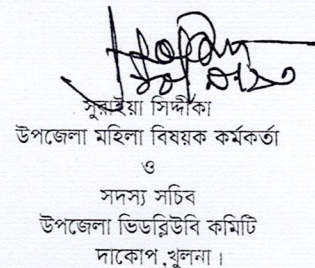 সুরাইয়া সিদ্দীকা
উপজেলা মহিলা বিষয়ক কর্মকর্তা
ও
সদস্য সচিব
উপজেলা ভিডব্লিউবি কমিটি
দাকোপ,খুলনা।